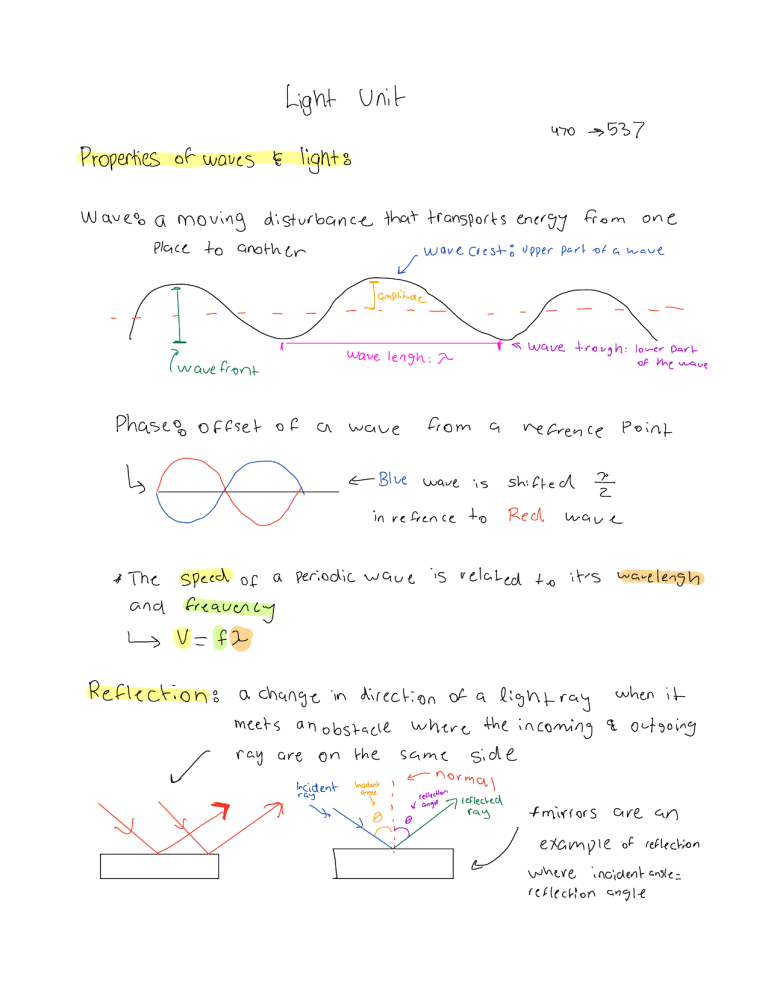 Light Unit
470 → 537
Properties of waves & light:
Wave: a moving disturbance that transports energy from one
place to another
wave crest: upper part of a wave
amplitude
wave lengh: λ
wave trough: lower part
of the wave
wavefront
Phase: offset of a wave from a refrence point
Blue wave is shifted λ/2
in refrence to Red wave
* The speed of a periodic wave is related to it's wavelengh
and frequency
↳ V = fλ
Reflection: a change in direction of a light ray when it
meets an obstacle where the incoming & outgoing
ray are on the same side
Incident
ray
Incident
angle
θ
normal
reflection
angle
θ
reflected
ray
* mirrors are an
example of reflection
where incident angle =
reflection angle